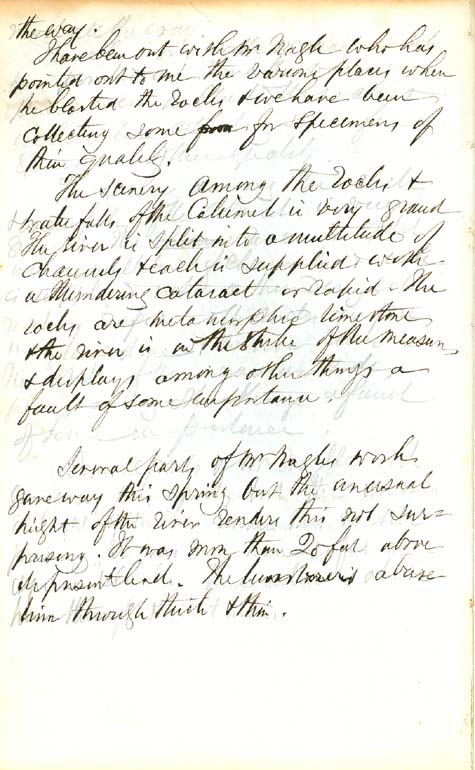 the way.
I have been out with Mr Nagle who has
pointed out to me the various places when
he blasted the rocks & we have been
collecting some from for specimens of
their quality.
The scenery among the rocks &
waterfalls of the Calumet is very grand
The river is split into a multitude of
channels & each is supplied with
a thundering cataract or rapid. The
rocks are metamorphic limestone
& the river is on the strike of the measures
& displays among other things a
fault of some importance.
Several parts of Mr Nagles work
gave way this spring but the unusual
hight of the river renders this not sur=
prising. It was more than 20 feet above
its present level. The lumberers abuse
him through thick & thin.